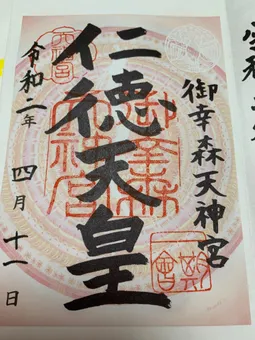 御幸森天神宮
仁徳天皇
御幸森
天神宮
令和二年 四月十一日